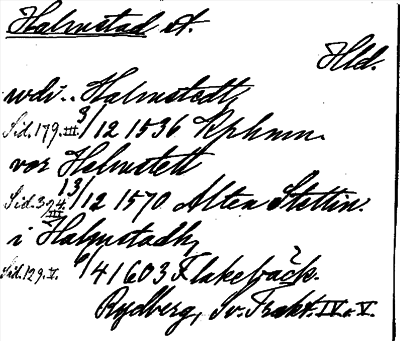 Halmstad st.
Hld.
udi.. Halmstedt,
Sid. 179. III. 3/12 1536 Kphmn.
vor Helmstett
Sid. 374. III 13/12 1570 Alten Stettin.
i Halmstadh,
Sid. 129. V. 6/4 1603 Flakebäck.
Rydberg, Sv. Trakt. IV o. V.